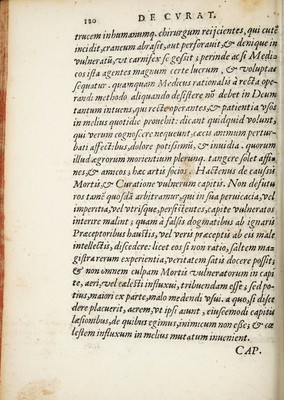 120 DE CVRAT.
trucem inhumanumq; chirurgum reijcientes, qui cutē
incidit, craneum abrasit, aut perforauit, & denique in
vulneratū, vt carnifex se gessit; perinde ac si Medi-
cos ista agentes magnum certe lucrum, & voluptas
sequatur. quamquam Medicus rationalis à recta ope-
randi methodo aliquando desistere nō debet in Deum
tantum intuens, qui recte operantes, & patientia vsos
in melius quotidie prouehit: dicant quidquid volunt,
qui verum cognoscere nequeunt, cæcis animum pertur-
bati affectibus, dolore potissimū, & inuidia. quorum
illud ægrorum morientium plerunq; tangere solet affi-
nes, & amicos; hæc artis socios. Hactenus de caussis
Mortis, & Curatione vulnerum capitis. Non defutu
ros tamē quosdā arbitramur, qui in sua peruicacia, vel
imperitia, vel vtrisque, persistentes, capite vulneratos
interire malint; quam à falsis dogmatibus ab ignaris
Præceptoribus haustis, vel veris præceptis ab eis male
intellectis, discedere: licet eos si non ratio, saltem ma-
gistra rerum experientia, veritatem satis docere possit;
& non omnem culpam Mortis vulneratorum in capi
te, aeri, vel cælesti influxui, tribuendam esse; sed po-
tius, maiori ex parte, malo medendi vsui. a quo, si disce
dere placuerit, aerem, vt ipsi aunt, eiuscemodi capitū
læsionibus, de quibus egimus, inimicum non esse; & cæ
lestem influxum in melius mutatum inuenient.
CAP.